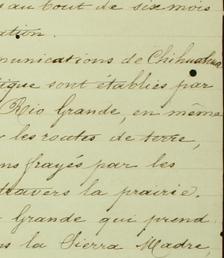 au bout de six mois
ation.
munications de Chihuahua
ique sont établies par
Rio Grande, en même
les routes de terre,
ns frayés par les
travers la prairie.
Grande qui prend
s la Sierra Madre,